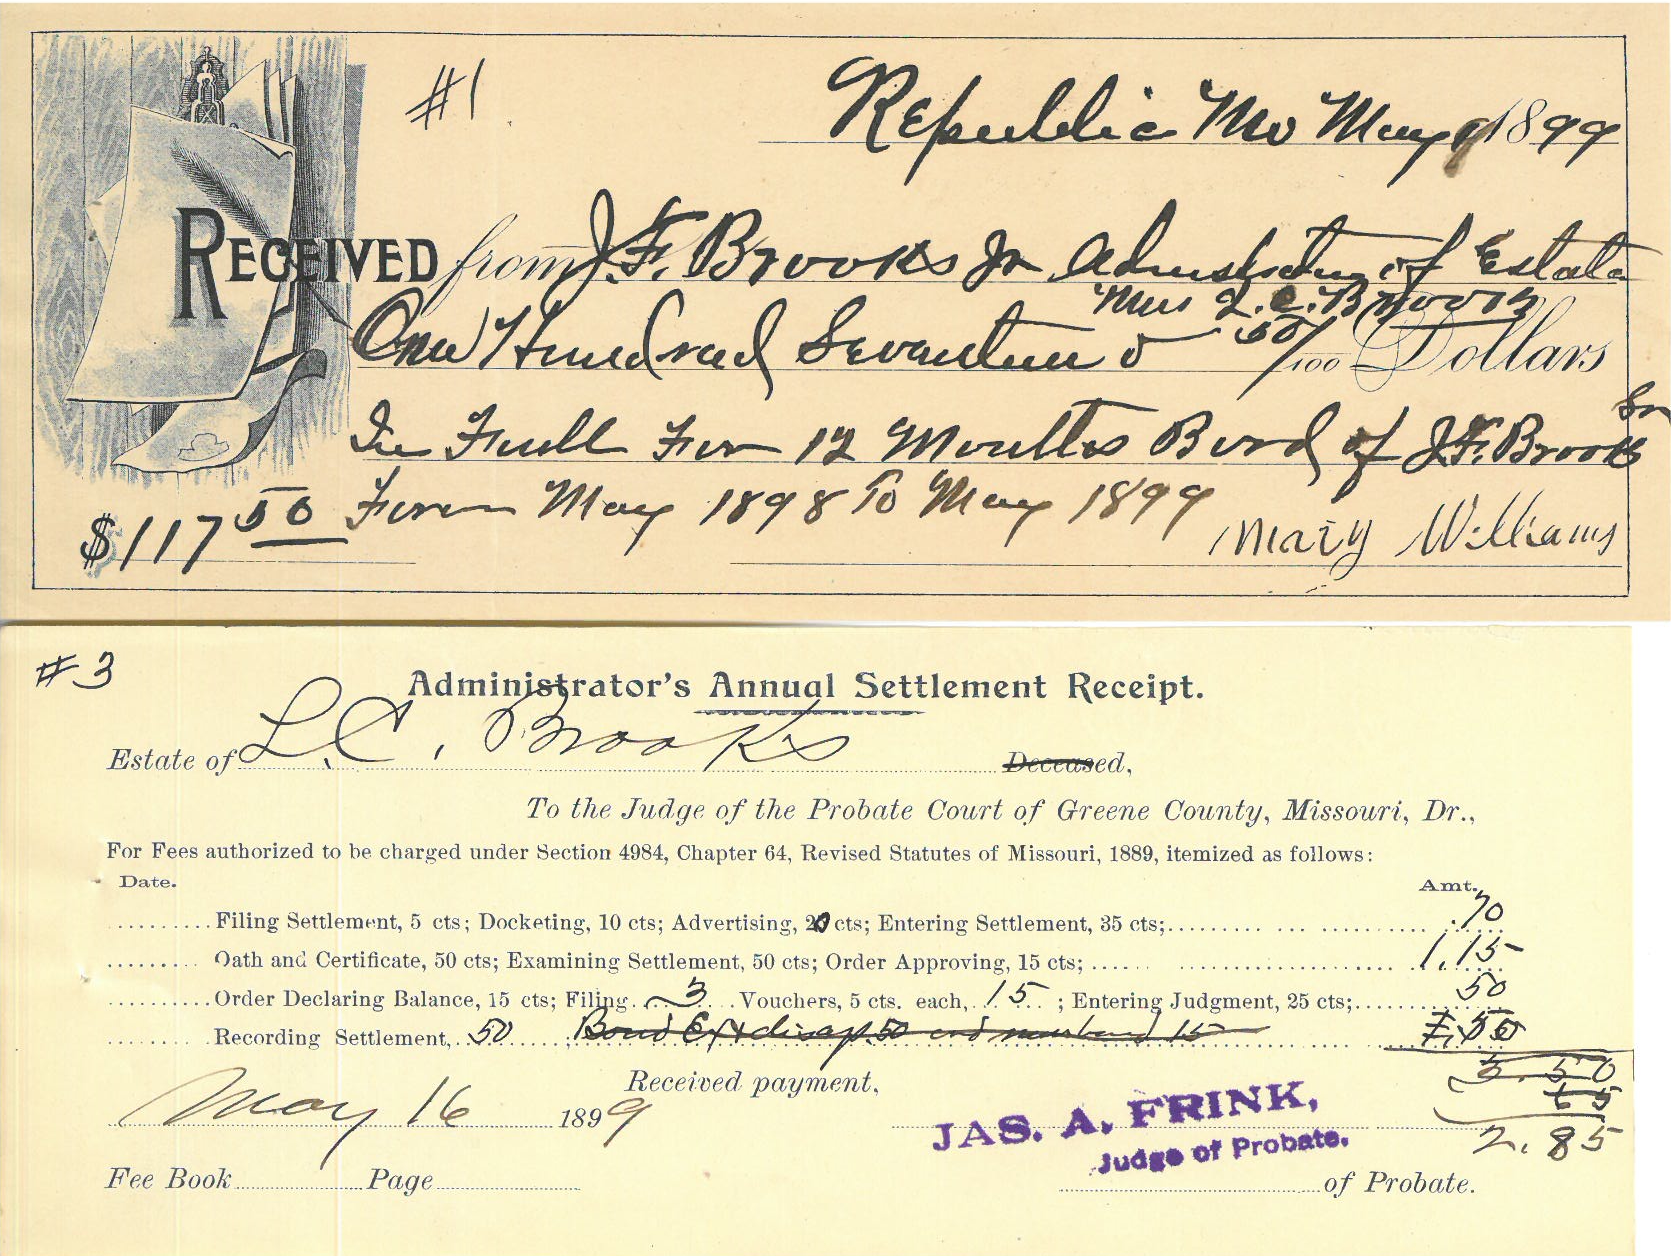 #1
Republic Mo May 9 1899
RECEIVED from J. F. Brooks Jr Admnstrator of Estate
Mrs L. C. Brooks
One Hundred Seventeen & 50/100 Dollars
In Full For 12 Months Bord of J.F. Brooks Sr
$117 50 From May 1898 To May 1899
Mary Williams
#3
Administrator's Annual Settlement Receipt.
Estate of L.C. Brooks Deceased,
To the Judge of the Probate Court of Greene County, Missouri, Dr.,
For Fees authorized to be charged under Section 4984, Chapter 64, Revised Statutes of Missouri, 1889, itemized as follows:
Date. Amt.
Filing Settlement, 5 cts; Docketing, 10 cts; Advertising, 20 cts; Entering Settlement, 35 cts; .70
Oath and Certificate, 50 cts; Examining Settlement, 50 cts; Order Approving, 15 cts; 1.15
Order Declaring Balance, 15 cts; Filing 3 Vouchers, 5 cts. each, 15 ; Entering Judgment, 25 cts; 50
Recording Settlement, 50 Bond Ex & disap. 50 and 15 .50
3.50
Received payment, 65
May 16 1899 JAS. A. FRINK, 2.85
Judge of Probate.
Fee Book Page of Probate.